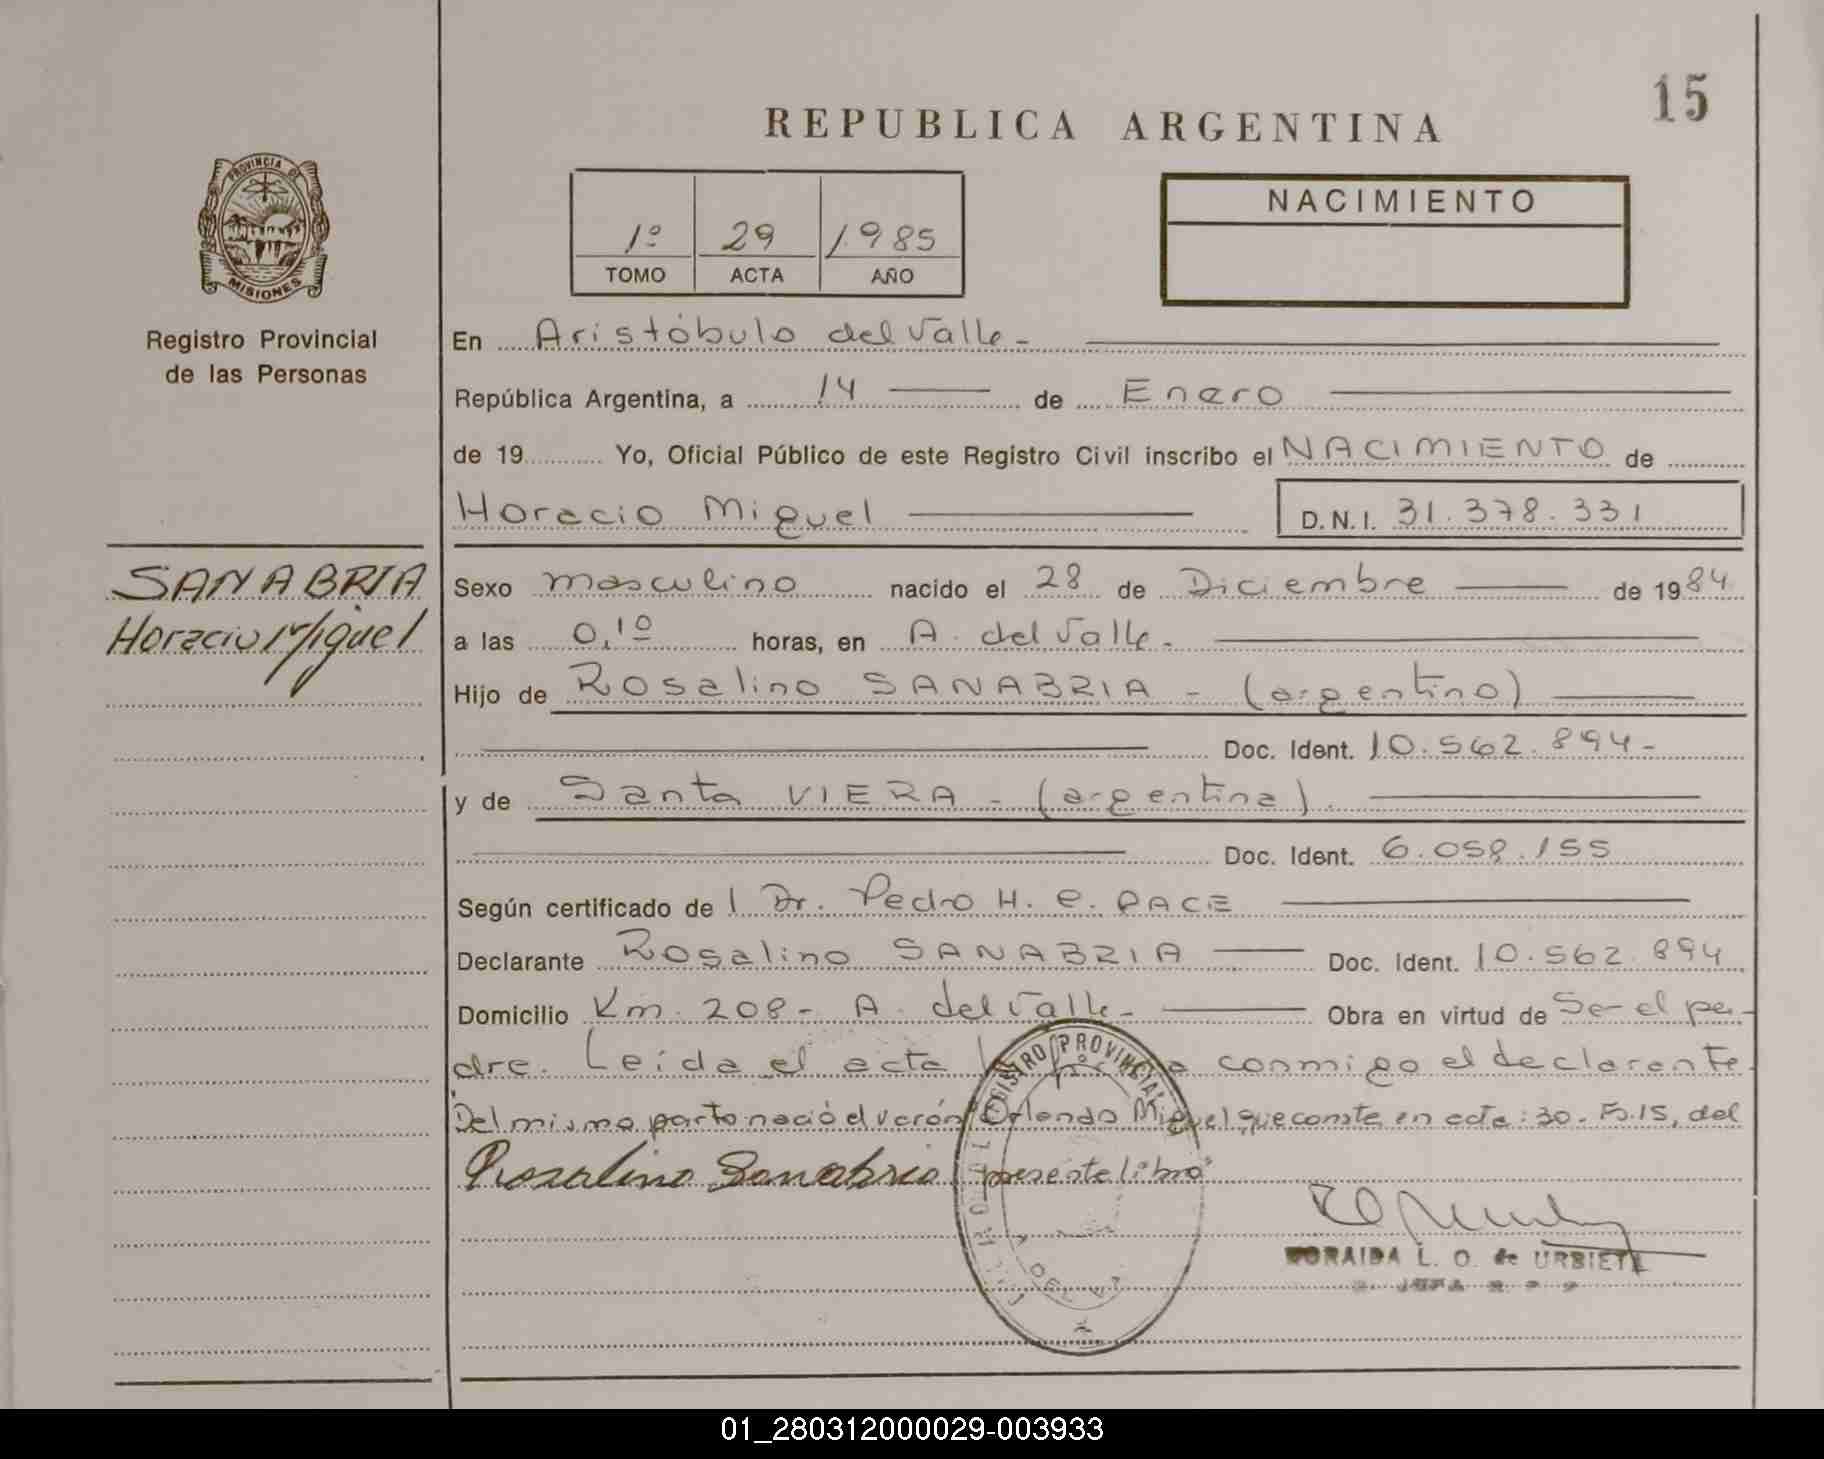 15
REPUBLICA ARGENTINA
PROVINCIA DE
MISIONES
Registro Provincial
de las Personas
1º 29 1.985
TOMO ACTA AÑO
NACIMIENTO
En Aristóbulo del Valle -
República Argentina, a 14 de Enero
de 19 Yo, Oficial Público de este Registro Civil inscribo el NACIMIENTO de
Horacio Miguel D.N.I. 31.378.331
SANABRIA
Horacio Miguel
Sexo masculino nacido el 28 de Diciembre de 1984
a las 0,10 horas, en A. del Valle -
Hijo de Rosalino SANABRIA - (argentino)
Doc. Ident. 10.562.894-
y de Santa VIERA - (argentina).
Doc. Ident. 6.058.155
Según certificado de l Dr. Pedro H. C. PACE
Declarante Rosalino SANABRIA Doc. Ident. 10.562.894
Domicilio Km. 208 - A. del Valle - Obra en virtud de Ser el pa-
dre. Leída el acta conmigo el declarante
"Del mismo parto nació el varón Orlando Miguel que consta en acta: 30 - Fº.15, del
Rosalino Sanabria presente libro"
REGISTRO PROVINCIAL
DEL
L. O. de URBIETA
01_280312000029-003933